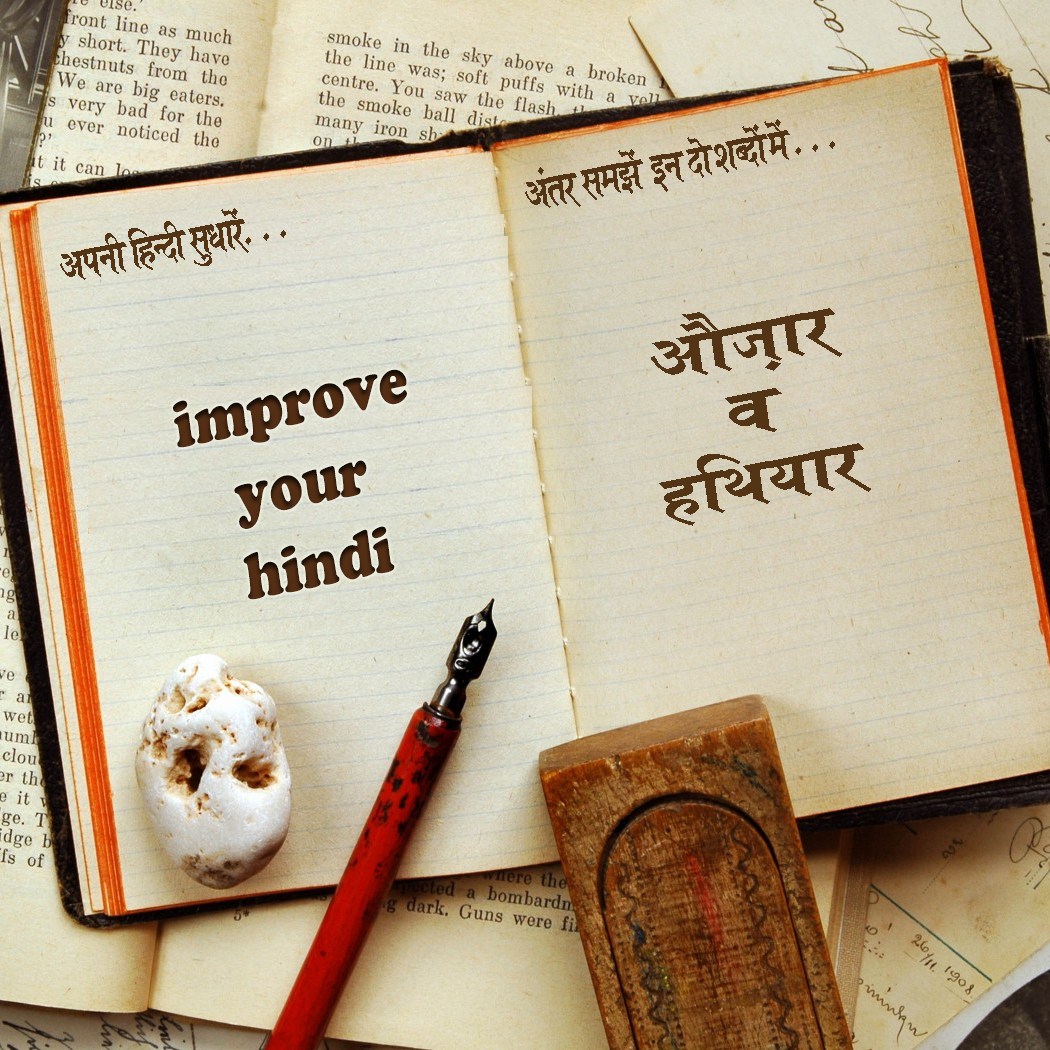 re else.'
front line as much
y short. They have
chestnuts from the
We are big eaters.
s very bad for the
u ever noticed the
?'
ut it can
smoke in the sky above a broken
the line was; soft puffs with a
centre. You saw the flash,
the smoke ball
many iron
on
अपनी हिन्दी सुधारें. . .
improve
your
hindi
अंतर समझें इन दो शब्दों में . . .
औज़ार
व
हथियार
where the
a bombardm
g dark. Guns were
5*
26/11. 1908.